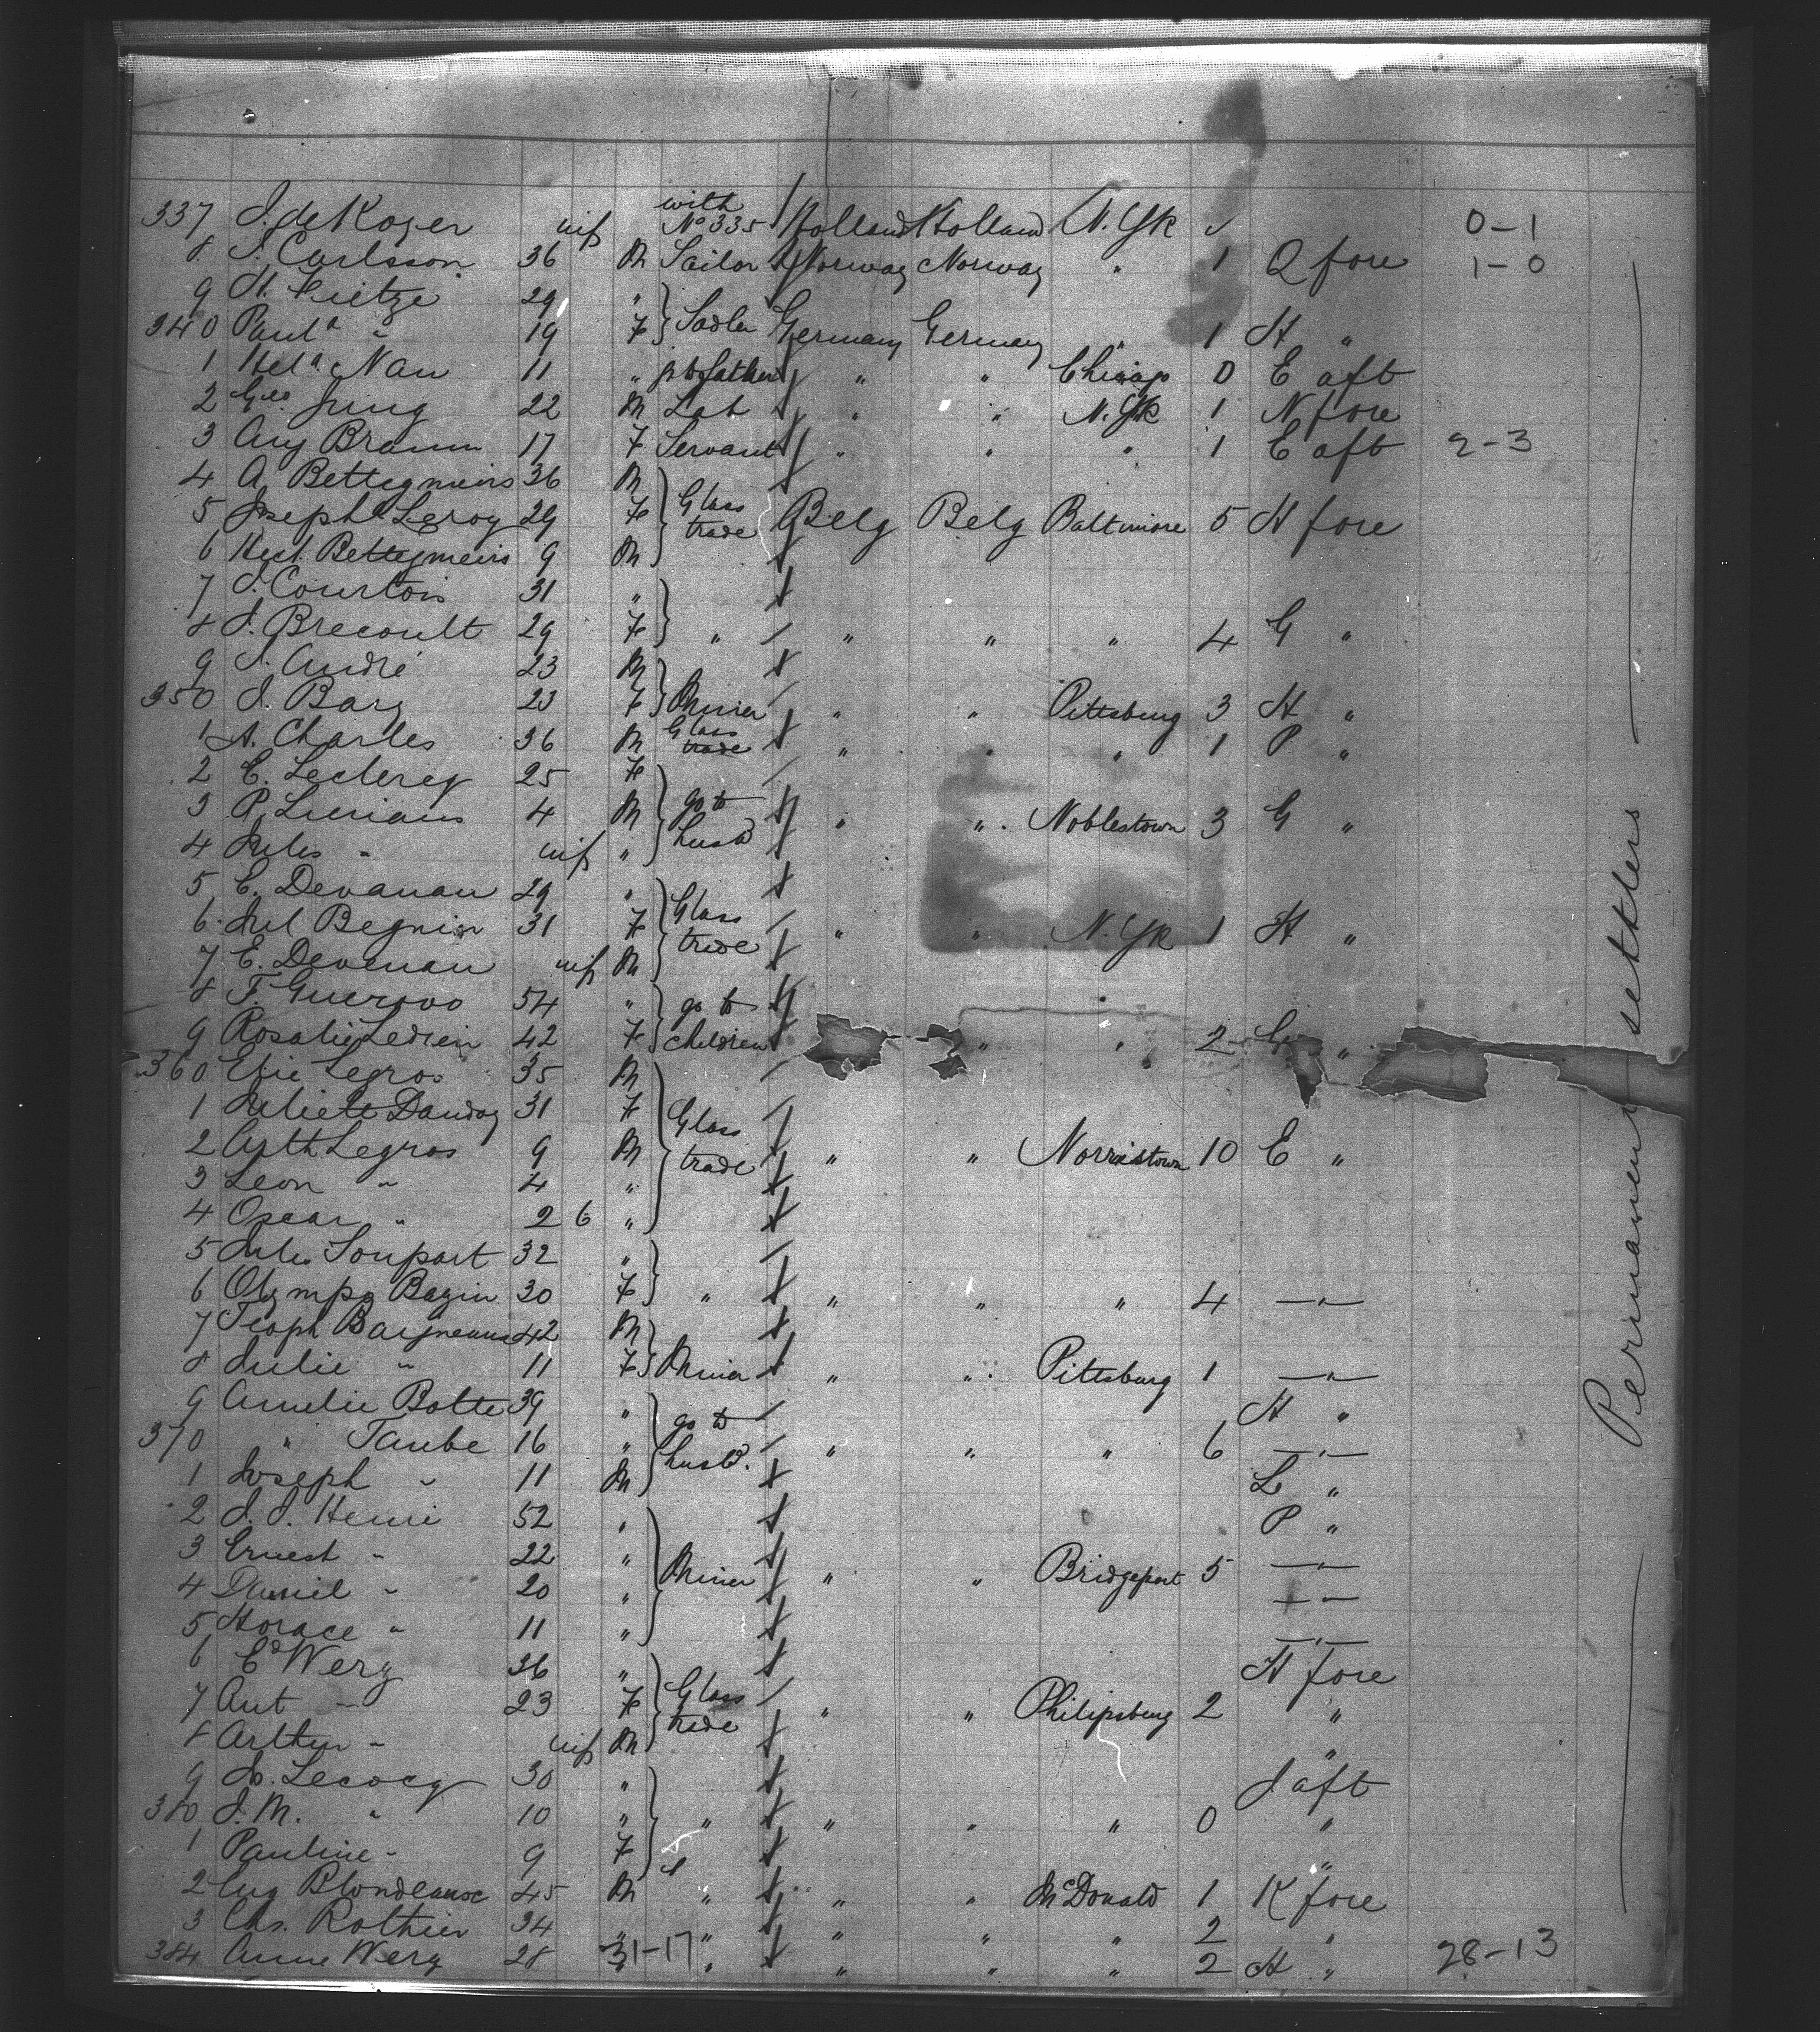 337 J. de Koger inf with No 335 Holland Holland N. Yk 0-1
8 J. Carlsson 36 M Sailor Norway Norway " 1 Q fore 1-0
9 H. Fietze 29 "
340 Paul^a " 19 F Sadler Germany Germany " 1 H "
1 Hel^a Nau 11 " p to father " " Chicago 0 E aft
2 Geo Jung 22 M Lab " " N. Yk 1 N fore
3 Aug Braun 17 F Servant " " " 1 E aft 2-3
4 A. Bettegmeirs 36 M
5 Joseph Leroy 29 F Glass trade Belg Belg Baltimore 5 H fore
6 Hect. Bettegmeirs 9 M
7 J. Courtois 31 "
8 J. Brecoult 29 F " " " " 4 G "
9 J. André 23 M
350 J. Barg 23 F Miner " " Pittsburg 3 H "
1 A. Charles 36 M Glass trade " " " 1 P "
2 E. Leclercq 25 F
3 P. Lucians 4 M go to husbd " " Noblestown 3 G "
4 Jules " inf "
5 E. Devanau 29 "
6 Jul Begnin 31 F Glass trade " " N. Yk 1 H "
7 E. Devenau inf M
8 F. 54 " go to
9 Rosalie Ledrein 42 F children " " 2 G "
360 Elie Legros 35 M
1 Juliete Dandoy 31 F Glass
2 Arth Legros 9 M trade " " Norristown 10 E "
3 Leon " 4 "
4 Oscar " 2 6 "
5 Jules Soupart 32 "
6 Olympe Bazin 30 F " " " " 4 —"—
7 Teoph Baigneaux 42 M
8 Julie " 11 F Miner " " Pittsburg 1 —"—
9 Amelie Botte 39 " go to H "
370 " Taube 16 " husbd. " " " 6 —"—
1 Joseph " 11 M L "
2 J. J. Henri 52 " P "
3 Ernest " 22 " Miner " " Bridgeport 5 —"—
4 Daniel " 20 " —"—
5 Horace " 11 " —"—
6 Ed Wery 36 " H fore
7 Ant " 23 F Glass trade " " Philipsburg 2 "
8 Arthur " inf M "
9 Jo. Lecocq 30 " J aft
380 J. M. " 10 " " " " " 0 "
1 Pauline " 9 F "
2 Eug Blondeaux 45 M " " " McDonald 1 K fore
3 Chs. Rothier 34 " " " " " 2 "
384 Anne Wery 28 31-17 " " " " 2 H " 28-13
Permanent settlers